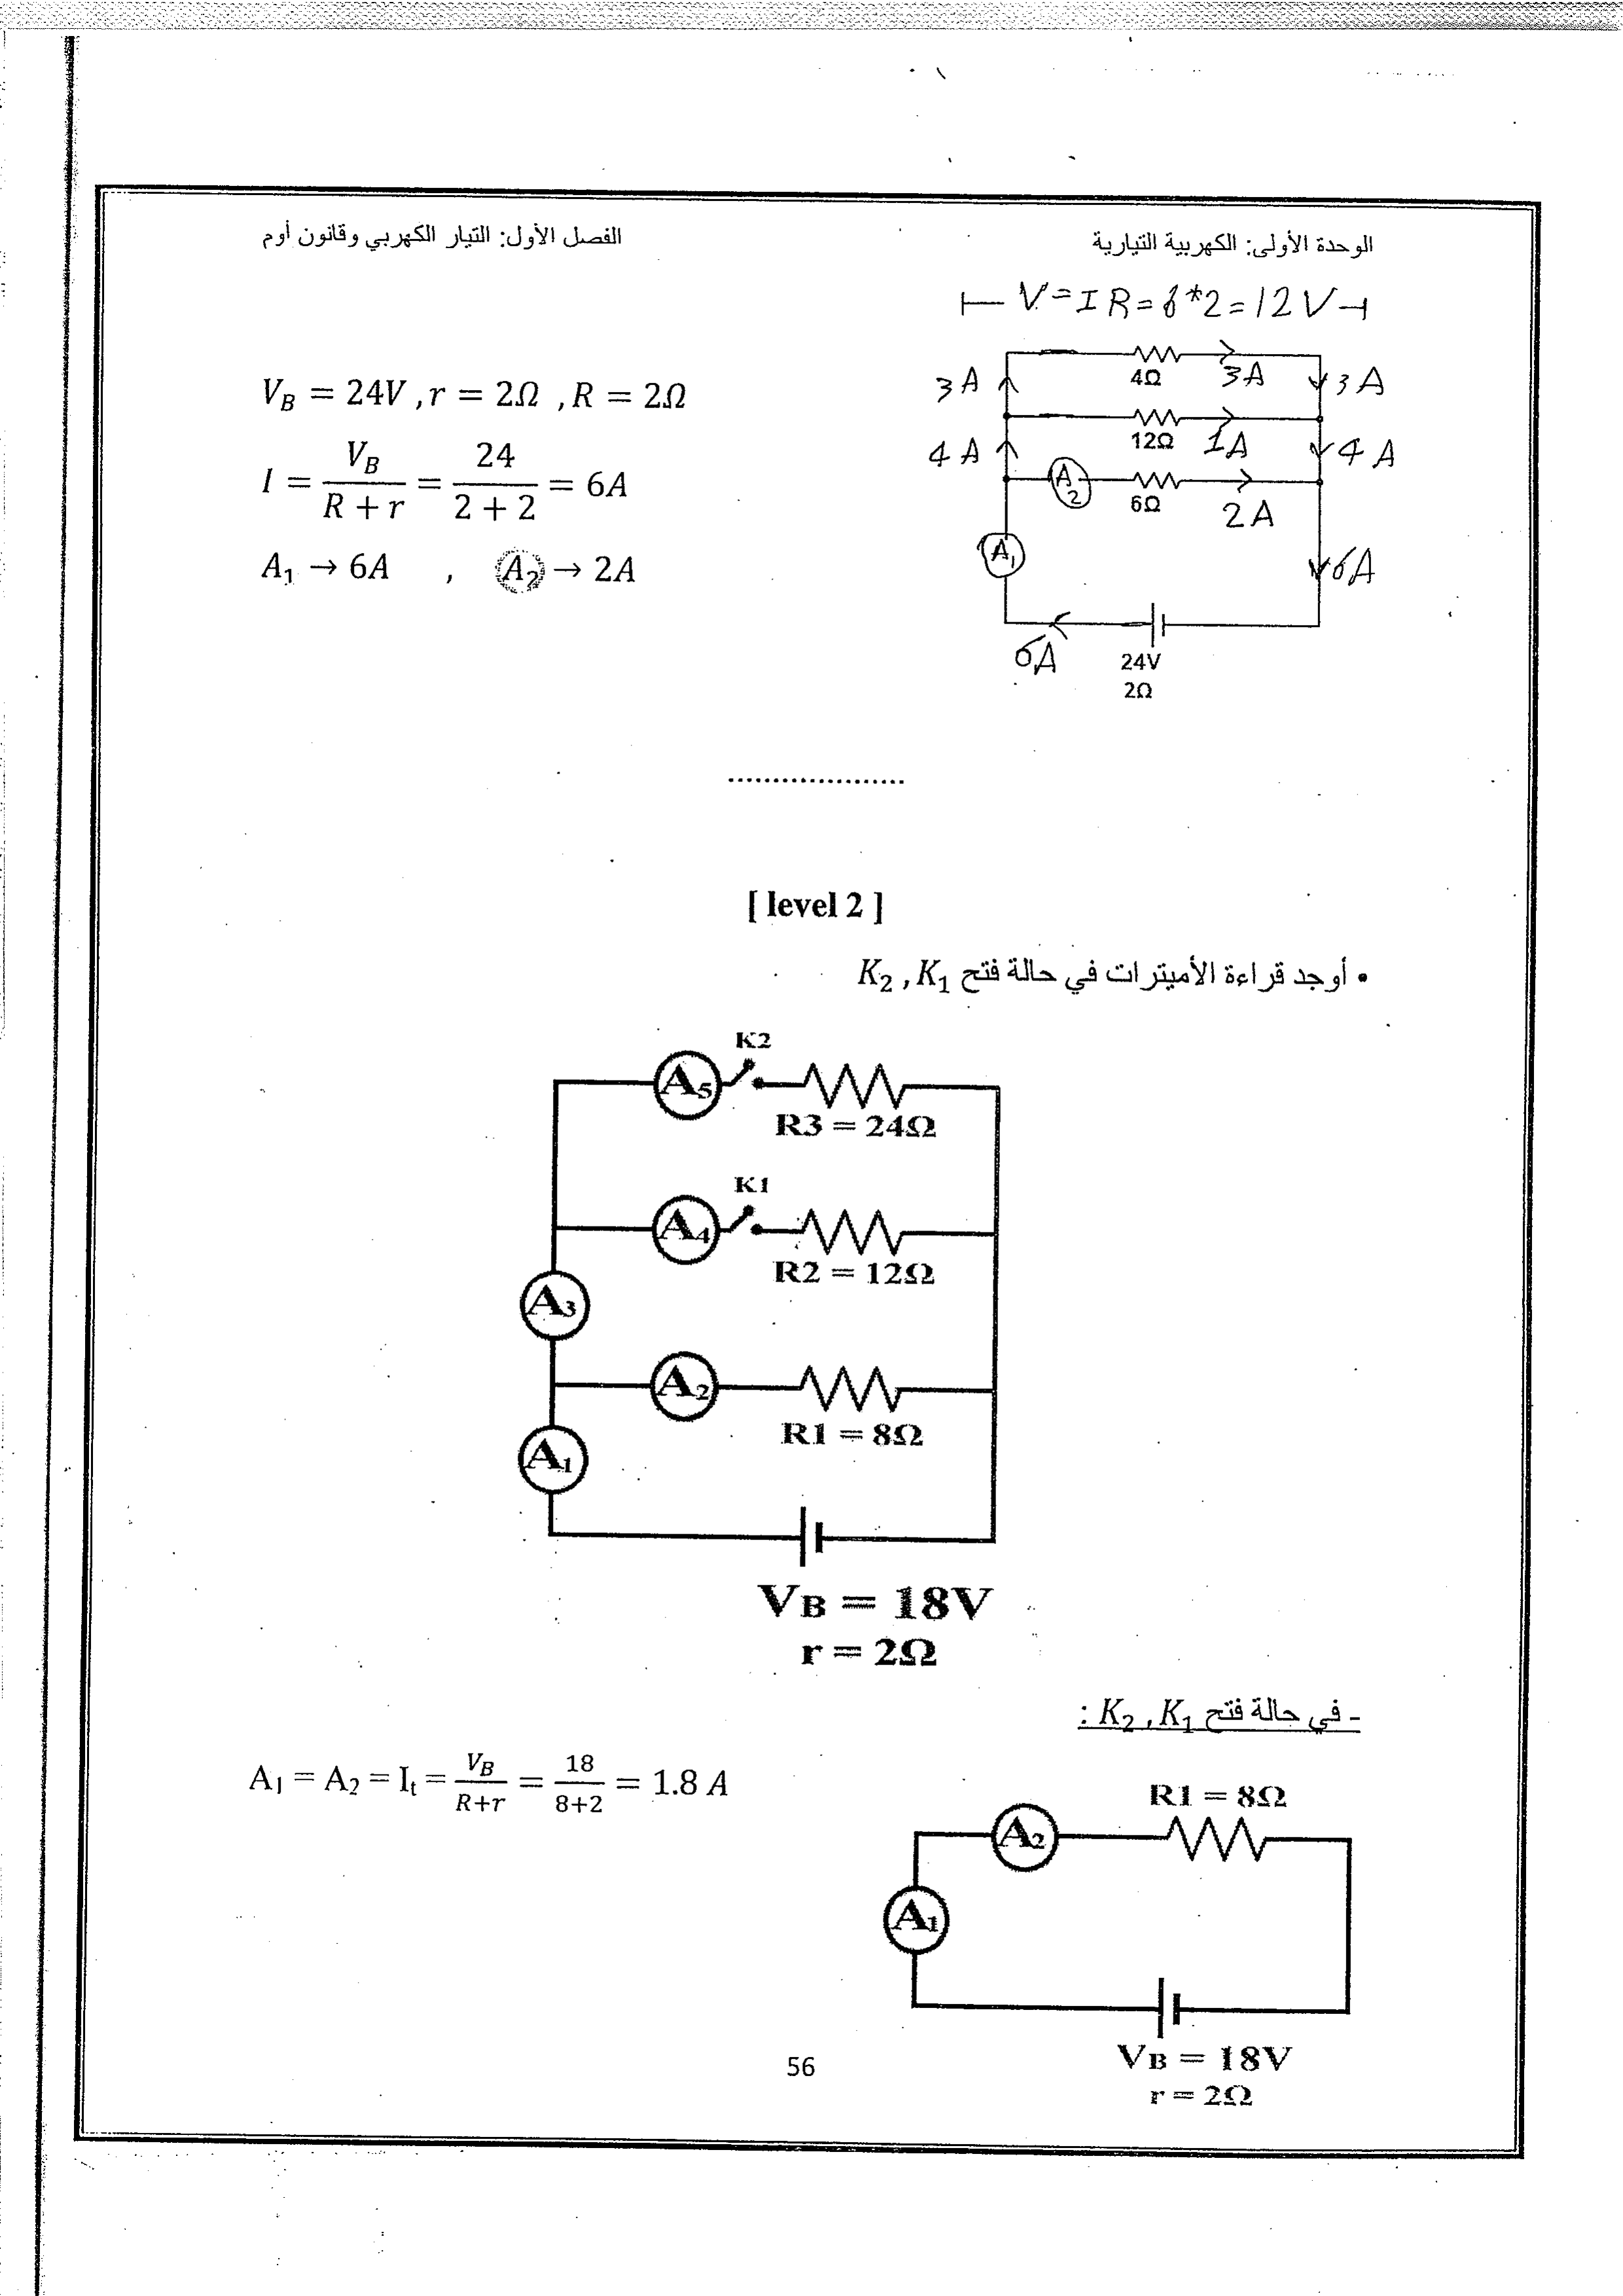 الوحدة الأولى: الكهربية التيارية
الفصل الأول: التيار الكهربي وقانون أوم
V = I R = 6*2 = 12 V
V_B = 24V , r = 2Ω , R = 2Ω
I = V_B / (R + r) = 24 / (2 + 2) = 6A
A₁ → 6A , A₂ → 2A
3A
4Ω
3A
3A
4A
12Ω
1A
4A
A₂
6Ω
2A
A₁
6A
6A
24V
2Ω
....................
[ level 2 ]
• أوجد قراءة الأميترات في حالة فتح K₂ , K₁
K2
A₅
R3 = 24Ω
K1
A₄
R2 = 12Ω
A₃
A₂
R1 = 8Ω
A₁
V_B = 18V
r = 2Ω
- في حالة فتح K₂ , K₁ :
A₁ = A₂ = Iₜ = V_B / (R+r) = 18 / (8+2) = 1.8 A
R1 = 8Ω
A₂
A₁
V_B = 18V
r = 2Ω
56